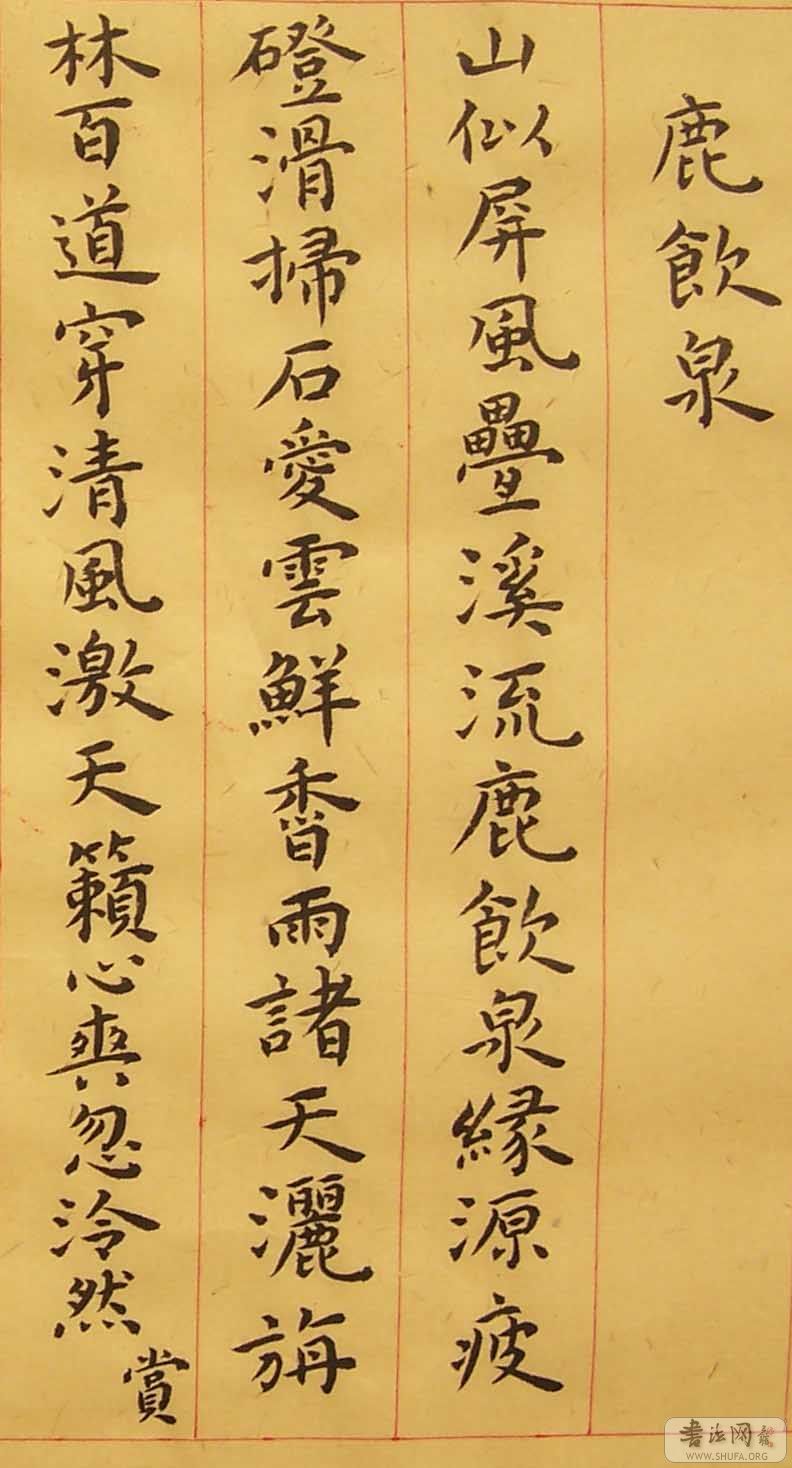 鹿飲泉
山似屏風疊溪流鹿飲泉緣源疲
磴滑掃石愛雲鮮香雨諸天灑旃
林百道穿清風激天籟心爽忽泠然
賞
書法网
WWW.SHUFA.ORG